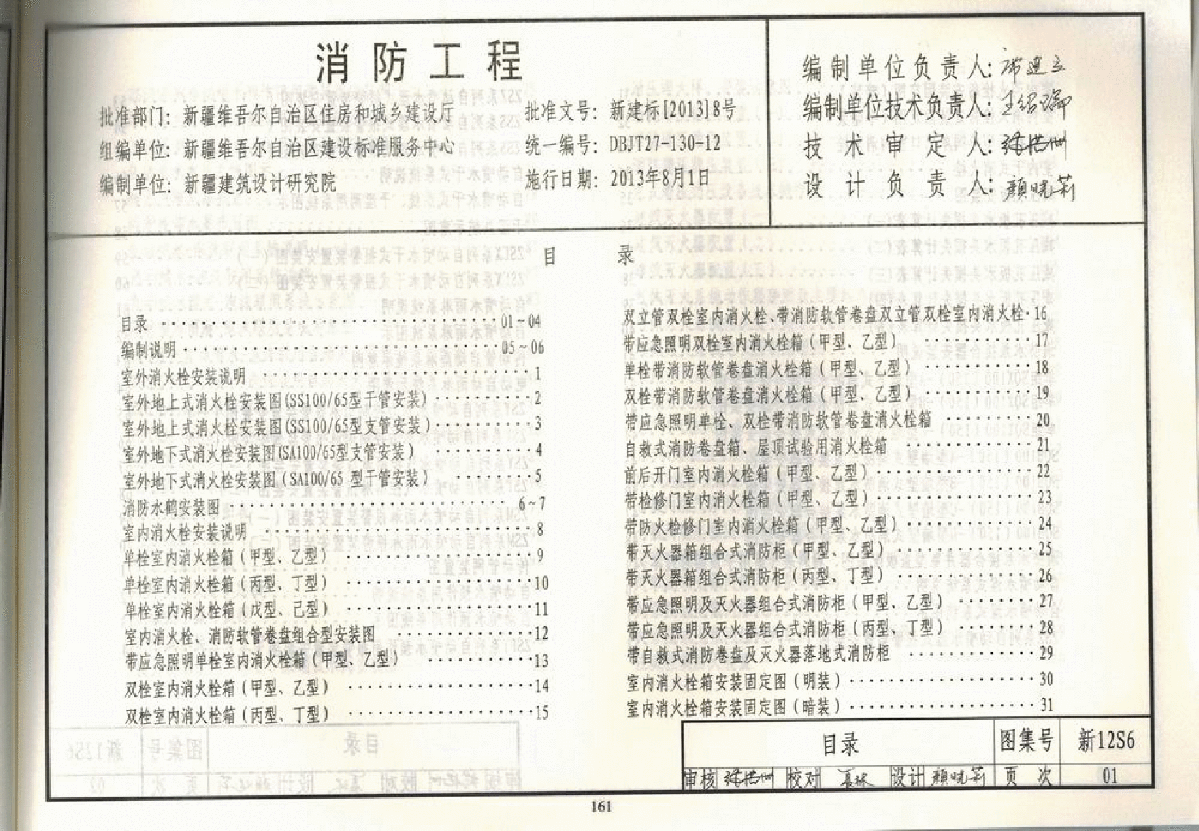 消防工程
批准部门：新疆维吾尔自治区住房和城乡建设厅 批准文号：新建标[2013]8号
组编单位：新疆维吾尔自治区建设标准服务中心 统一编号：DBJT27-130-12
编制单位：新疆建筑设计研究院 施行日期：2013年8月1日
编制单位负责人：
编制单位技术负责人：
技术审定人：
设计负责人：颜晓莉
目 录
目录 01~04
编制说明 05~06
室外消火栓安装说明 1
室外地上式消火栓安装图(SS100/65型干管安装) 2
室外地上式消火栓安装图(SS100/65型支管安装) 3
室外地下式消火栓安装图(SA100/65型支管安装) 4
室外地下式消火栓安装图(SA100/65 型干管安装) 5
消防水鹤安装图 6~7
室内消火栓安装说明 8
单栓室内消火栓箱(甲型、乙型) 9
单栓室内消火栓箱(丙型、丁型) 10
单栓室内消火栓箱(戊型、己型) 11
室内消火栓、消防软管卷盘组合型安装图 12
带应急照明单栓室内消火栓箱(甲型、乙型) 13
双栓室内消火栓箱(甲型、乙型) 14
双栓室内消火栓箱(丙型、丁型) 15
双立管双栓室内消火栓、带消防软管卷盘双立管双栓室内消火栓 16
带应急照明双栓室内消火栓箱(甲型、乙型) 17
单栓带消防软管卷盘消火栓箱(甲型、乙型) 18
双栓带消防软管卷盘消火栓箱(甲型、乙型) 19
带应急照明单栓、双栓带消防软管卷盘消火栓箱 20
自救式消防卷盘箱、屋顶试验用消火栓箱 21
前后开门室内消火栓箱(甲型、乙型) 22
带检修门室内消火栓箱(甲型、乙型) 23
带防火检修门室内消火栓箱(甲型、乙型) 24
带灭火器箱组合式消防柜(甲型、乙型) 25
带灭火器箱组合式消防柜(丙型、丁型) 26
带应急照明及灭火器组合式消防柜(甲型、乙型) 27
带应急照明及灭火器组合式消防柜(丙型、丁型) 28
带自救式消防卷盘及灭火器落地式消防柜 29
室内消火栓箱安装固定图(明装) 30
室内消火栓箱安装固定图(暗装) 31
目录 图集号 新12S6
审核 校对 设计 颜晓莉 页次 01
161